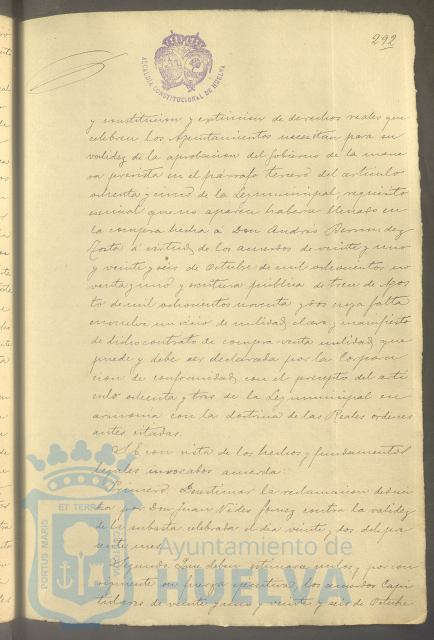 292
ALCALDIA CONSTITUCIONAL DE HUELVA
y constitucion y extincion de derechos reales que
celebren los Ayuntamientos necesitan para su
validez de la aprobacion del Gobierno de la mane
ra prevista en el párrafo tercero del artículo
ochenta y cinco de la Ley municipal, requisito
esencial que no aparece haberse llenado en
la compra hecha á Don Andrés Bermudez
á virtud de los acuerdos de veinte y uno
y veinte y seis de Octubre de mil ochocientos no
venta y uno y escritura pública de trece de Agos
to de mil ochocientos noventa y dos cuya falta
envuelve un vicio de nulidad claro y manifiesto
de dicho contrato de compra venta nulidad que
puede y debe ser declarada por la Corpora
cion de conformidad con el precepto del arti
culo ochenta y tres de la Ley municipal en
armonia con la doctrina de las Reales ordenes
antes citadas.
con vista de los hechos y fundamentos
legales invocados acuerda:
Primero. Desestimar la reclamacion deduci
da por Don Juan Nuñez Gomez contra la validez
de la subasta celebrada el dia veinte y dos del pre
sente mes.
Segundo. Que deben estimarse nulos y por con
siguiente sin fuerza ejecutiva los acuerdos Capi
tulares de veinte y uno y veinte y seis de Octubre
PORTUS MARIS ET TERRAE CUSTODIA
Ayuntamiento de
HUELVA